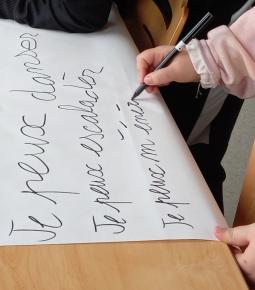 Je peux danser
Je peux escalader
Je peux m'en